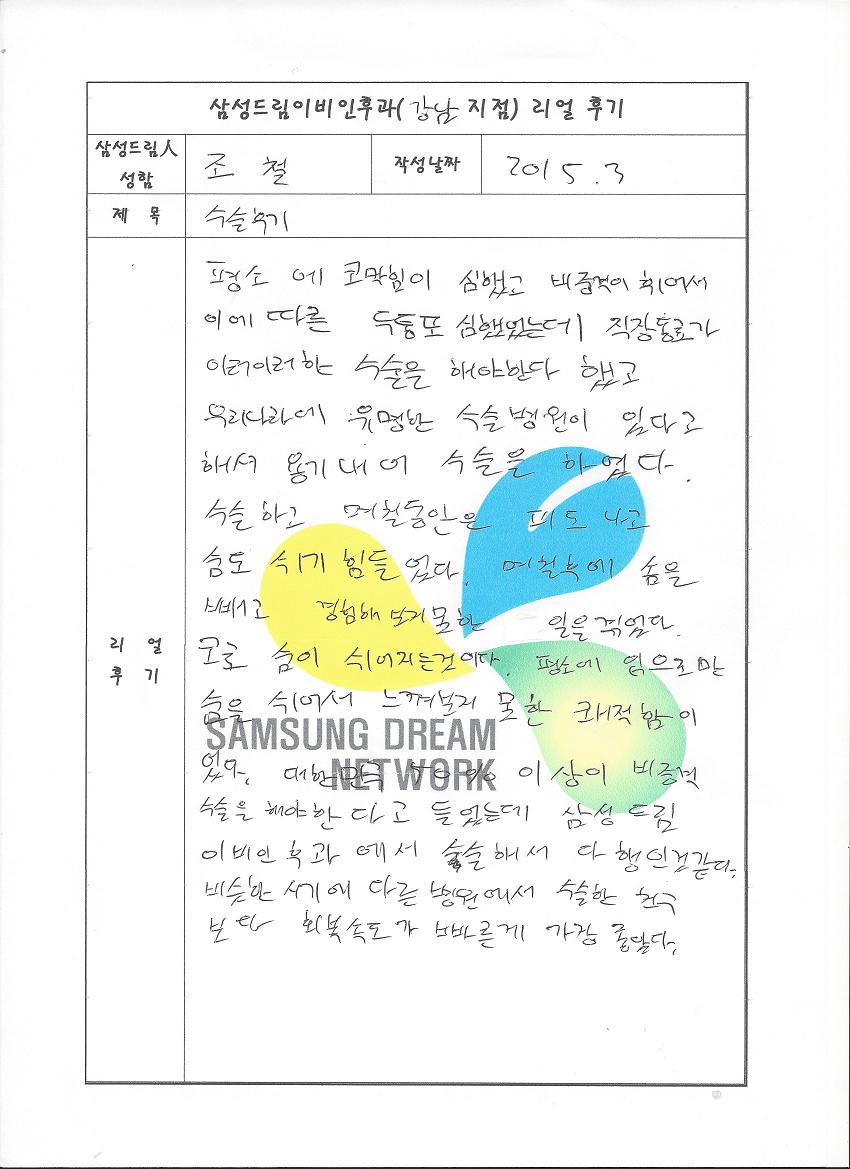 삼성드림이비인후과( 강남 지점) 리얼 후기
삼성드림人 성함
조 철
작성날짜
2015.3
제 목
수술후기
리 얼 후 기
평소 에 코막힘이 심했고 비중격이 휘어서
이에 따른 두통또 심했었는데 직장동료가
이러이러한 수술을 해야한다 했고
우리나라에 유명한 수술병원이 있다고
해서 용기내어 수술을 하였다.
수술하고 며칠동안은 피도 나고
숨도 쉬기 힘들었다. 며칠후에 솜을
빼고 경험해 보지못한 일을 겪었다.
코로 숨이 쉬어지는것이다. 평소에 입으로만
숨을 쉬어서 느껴보지 못한 쾌적함이
SAMSUNG DREAM NETWORK
있다. 대한민국 70% 이상이 비중격
수술을 해야한다고 들었는데 삼성드림
이비인후과에서 수술해서 다행인것같다.
비슷한 시기에 다른 병원에서 수술한 친구
보다 회복속도가 빠른게 가장 좋았다.